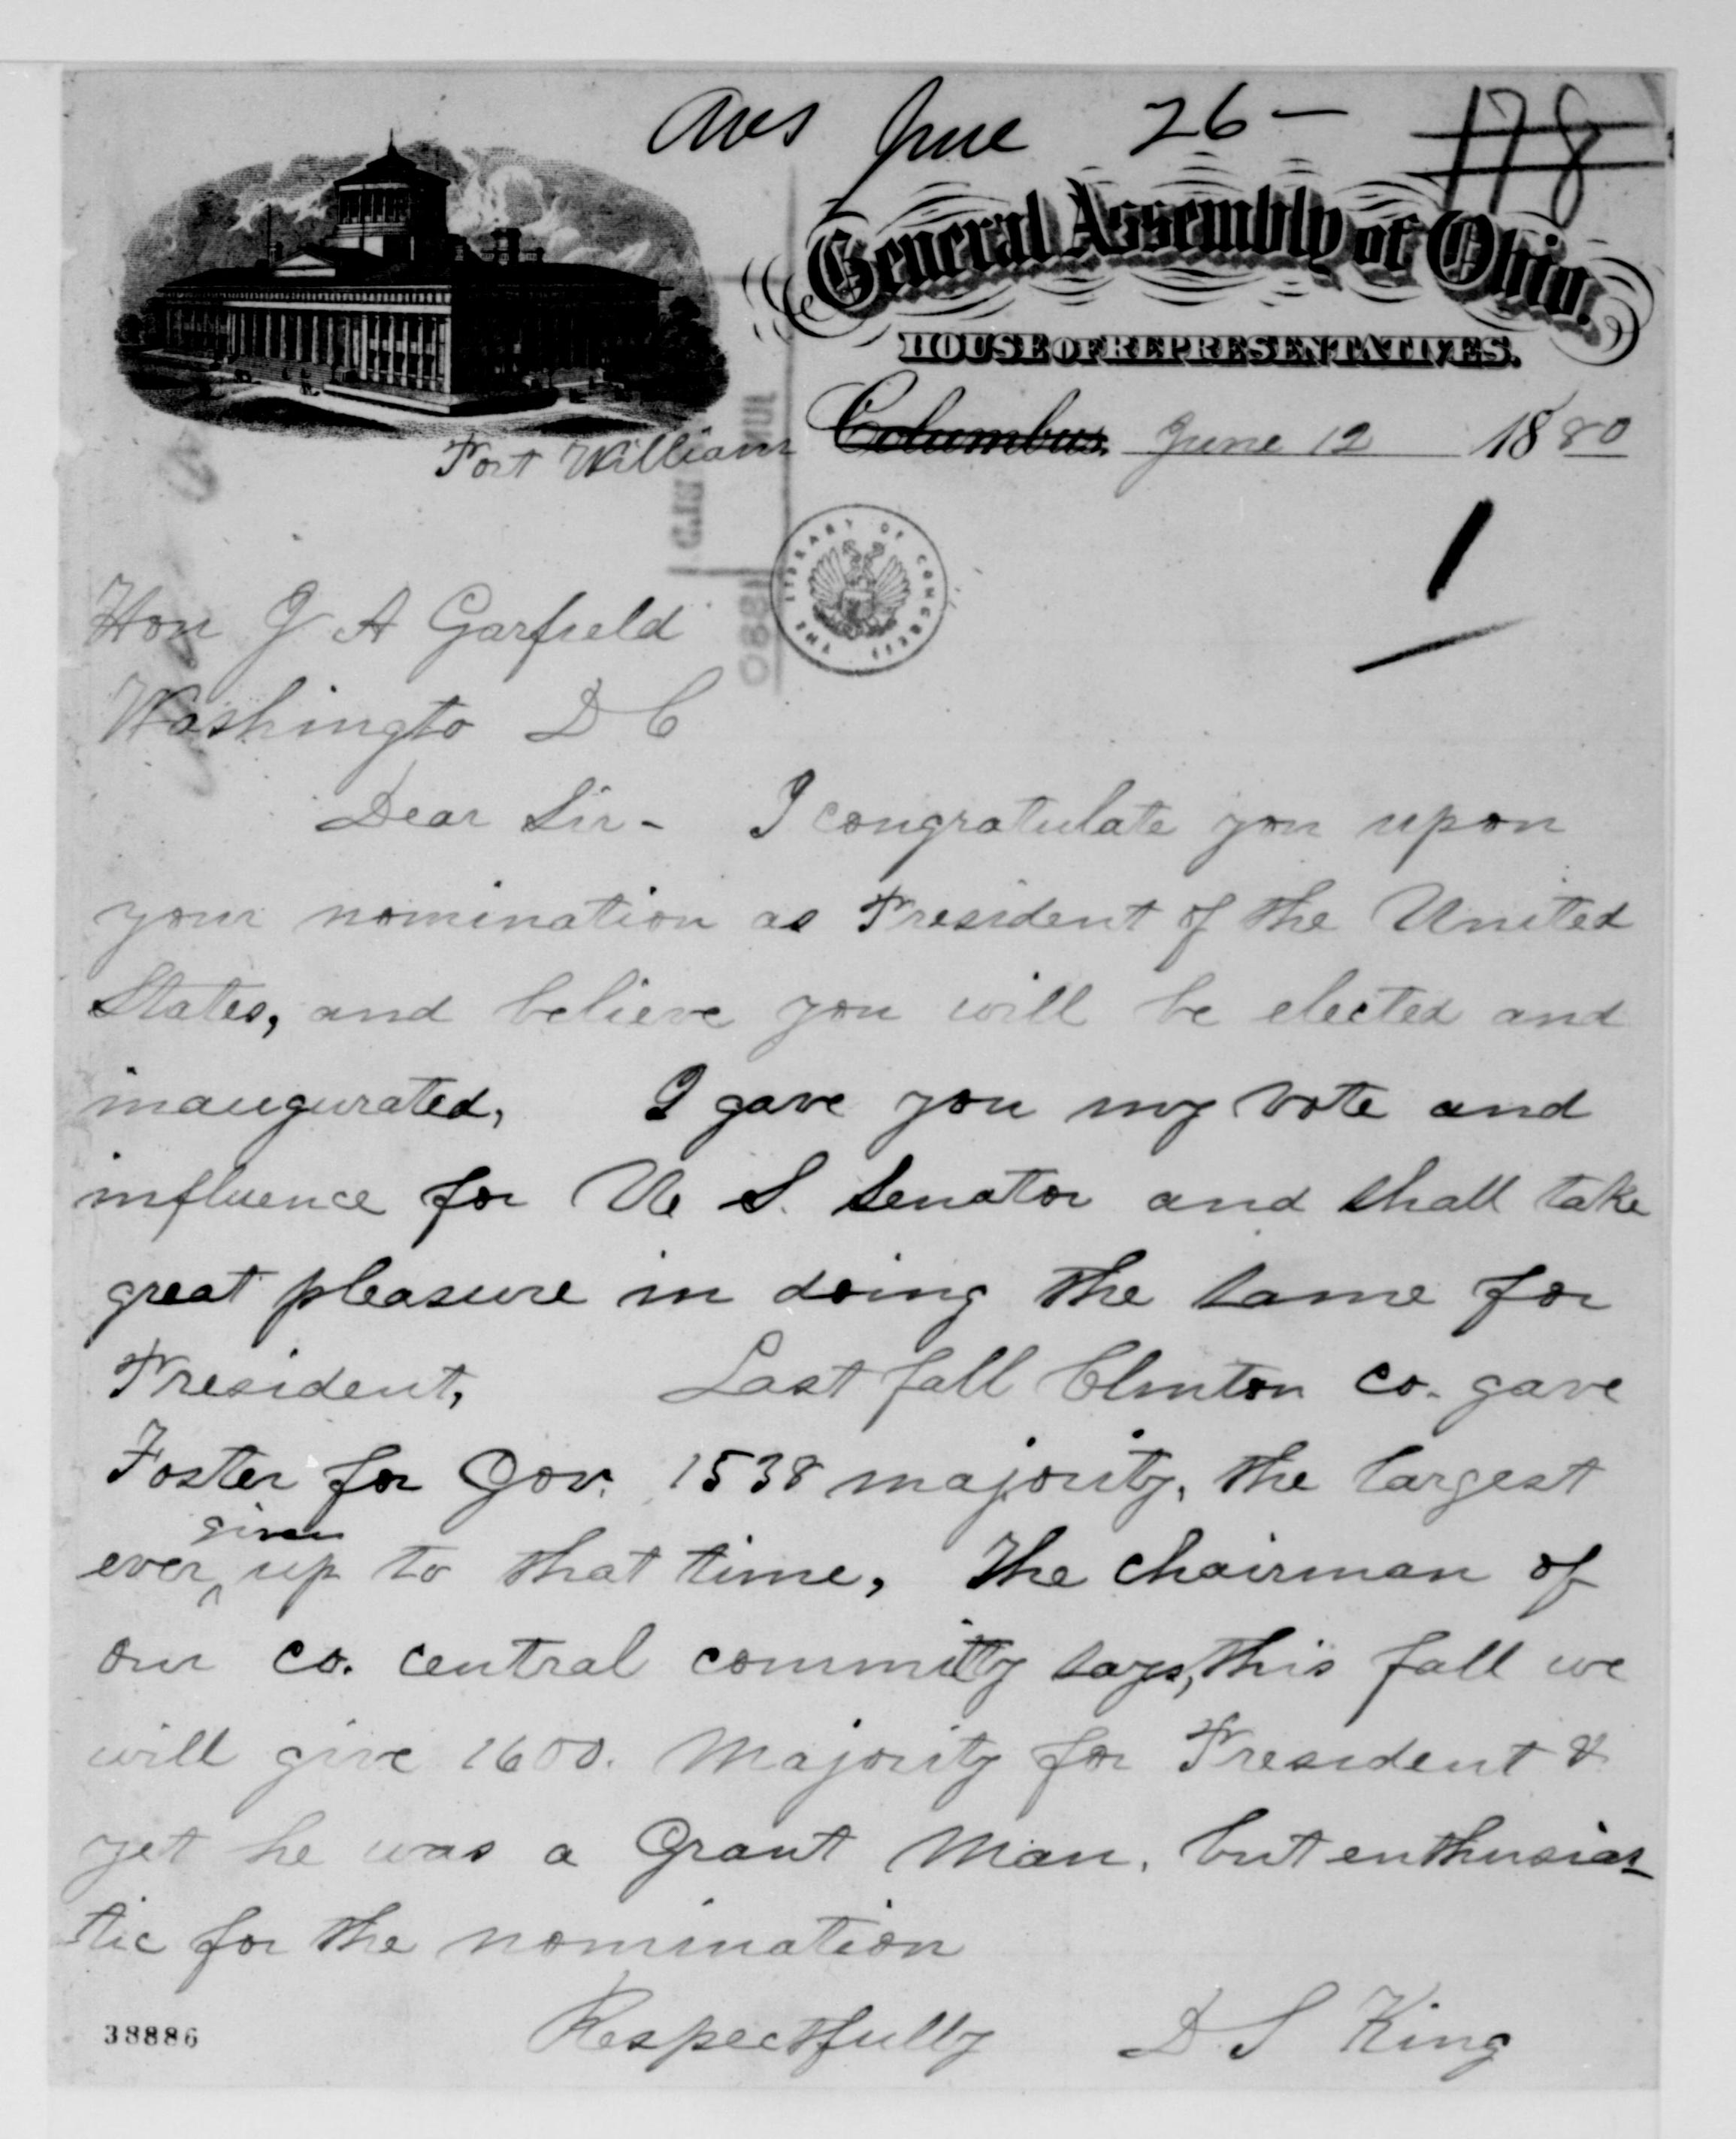 Ans June 26 - 178
General Assembly of Ohio.
HOUSE OF REPRESENTATIVES.
Port William Columbus, June 12 1880
1
THE LIBRARY OF CONGRESS
1880
Hon J A Garfield
Washingto D C
Dear Sir - I congratulate you upon
your nomination as President of the United
States, and believe you will be elected and
inaugurated, I gave you my vote and
influence for U. S. Senator and shall take
great pleasure in doing the same for
President, Last fall Clinton co. gave
Foster for Gov. 1538 majority, the largest
given
ever ^ up to that time, The chairman of
our co. central committy says, this fall we
will give 1600. Majority for President &
yet he was a Grant Man, but enthusias-
tic for the nomination
Respectfully D. S King
38886